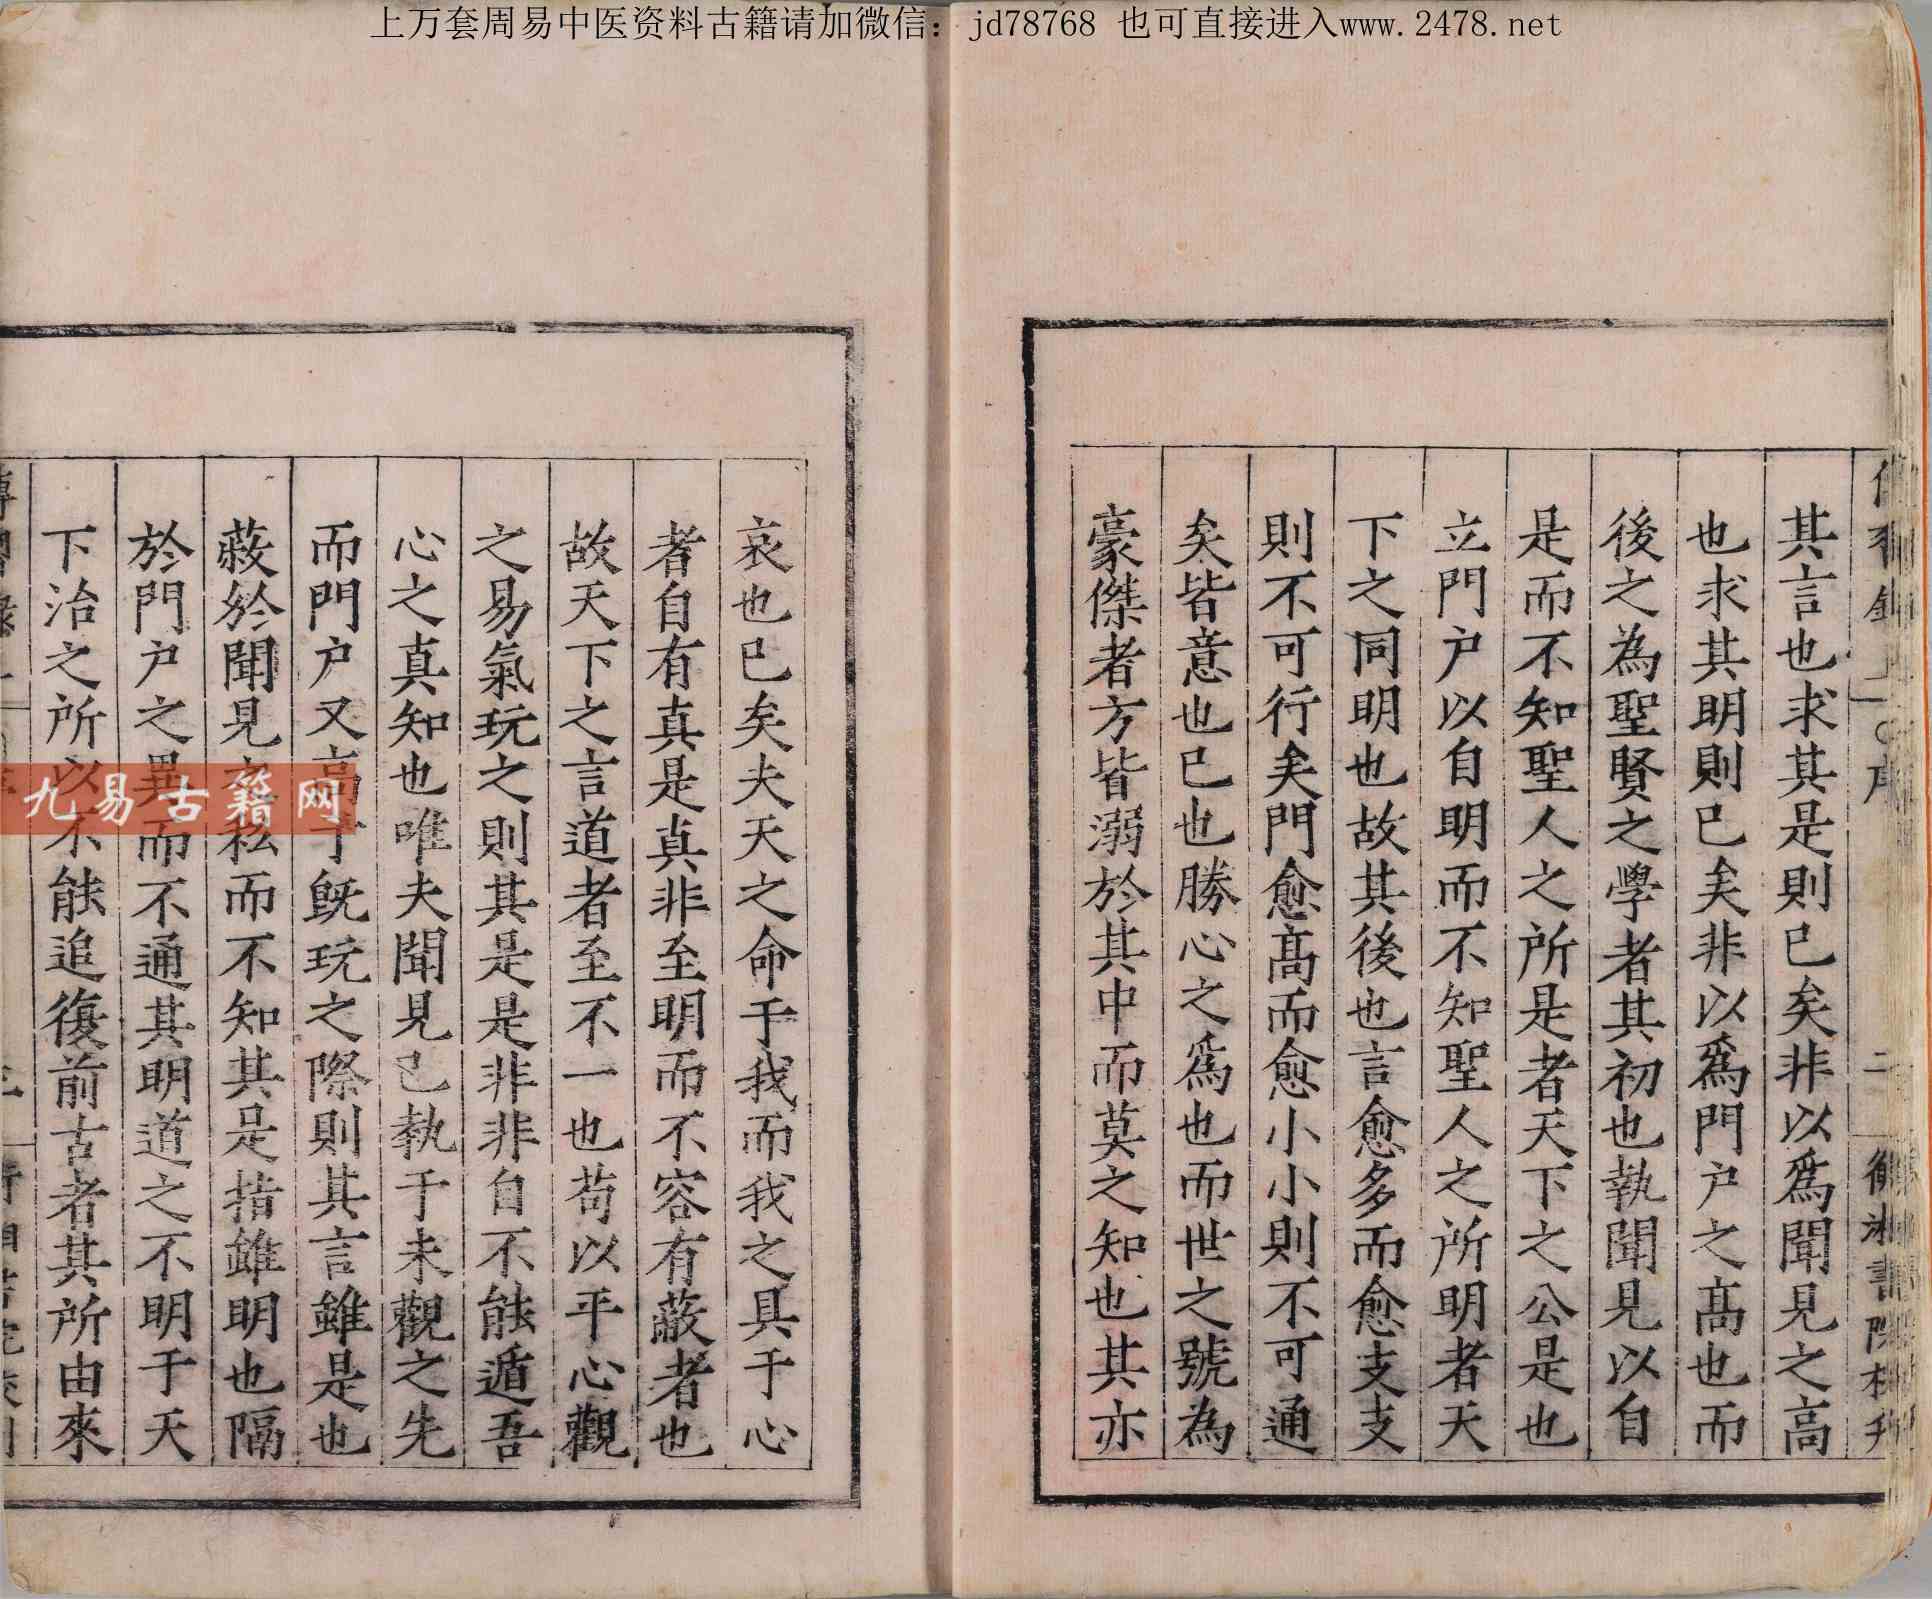 上万套周易中医资料古籍请加微信：jd78768 也可直接进入www.2478.net
其言也求其是則已矣非以爲聞見之高
也求其明則已矣非以爲門户之高也而
後之為聖賢之學者其初也執聞見以自
是而不知聖人之所是者天下之公是也
立門户以自明而不知聖人之所明者天
下之同明也故其後也言愈多而愈支支
則不可行矣門愈高而愈小小則不可通
矣皆意也已也勝心之爲也而世之號為
豪傑者方皆溺於其中而莫之知也其亦
哀也已矣夫天之命于我而我之具于心
者自有真是真非至明而不容有蔽者也
故天下之言道者至不一也苟以平心觀
之易氣玩之則其是是非非自不能遁吾
心之真知也唯夫聞見已執于未觀之先
而門户又高于既玩之際則其言雖是也
蔽於聞見私而不知其是指雖明也隔
於門户之異而不通其明道之不明于天
下治之所以不能追復前古者其所由來
九易古籍网